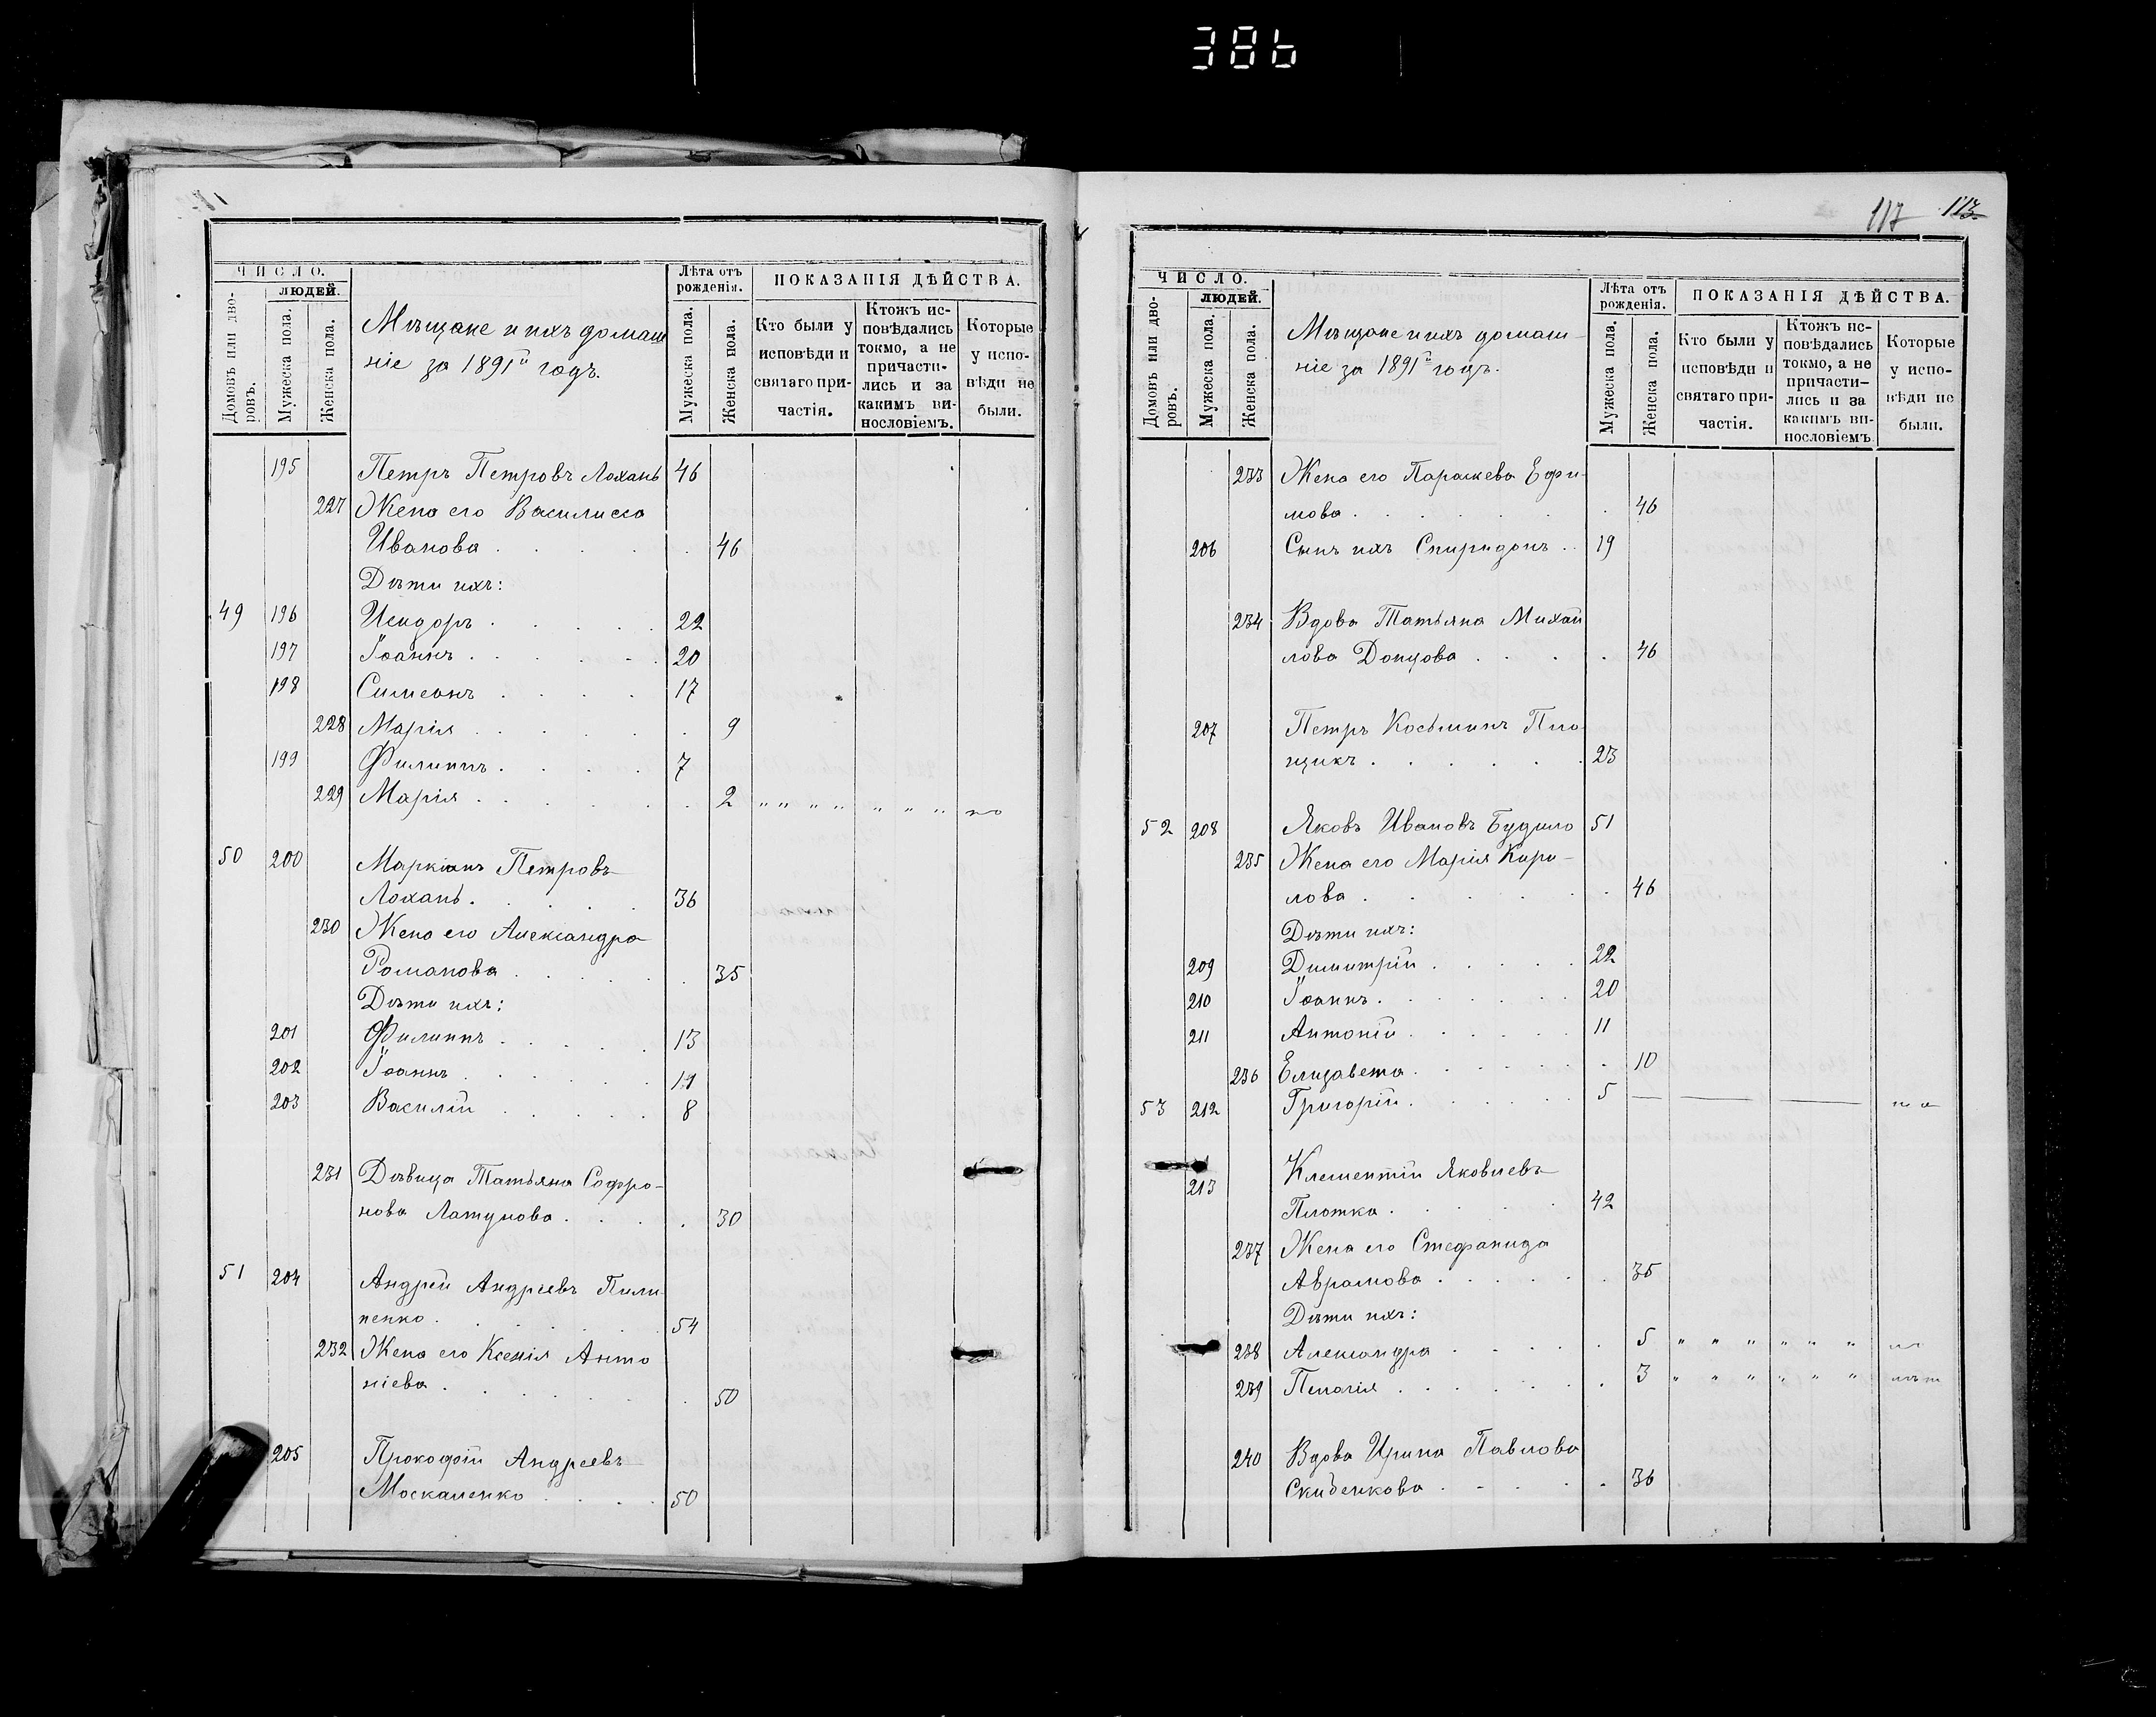 386
ЧИСЛО.
ЛЮДЕЙ.
Домовъ или дворовъ.
Мужеска пола.
Женска пола.
Мѣщане и ихъ домаш
ніе за 1891й годъ.
Лѣта отъ
рожденія.
Мужеска пола.
Женска пола.
ПОКАЗАНІЯ ДѢЙСТВА.
Кто были у
исповѣди и
святаго при-
частія.
Ктожъ ис-
повѣдались
токмо, а не
причасти-
лись и за
какимъ ви-
нословіемъ.
Которые
у испо-
вѣди не
были.
195 Петръ Петровъ Лохань 46
227 Жена его Василисса
Иванова . . . . . 46
Дѣти ихъ:
49 196 Исидоръ . . . . . 22
197 Іоаннъ . . . . . . 20
198 Симеонъ . . . . 17
228 Марія . . . . . . 9
199 Филиппъ . . . . 7
229 Марія . . . . . . 2 " " " " " " " " по
50 200 Маркіанъ Петровъ
Лохань . . . . . 36
230 Жена его Александра
Романова . . . . . 35
Дѣти ихъ:
201 Филиппъ . . . . . 13
202 Іоаннъ . . . . . . 11
203 Василій . . . . . 8
231 Дѣвица Татьяна Софро-
нова Латунова . . . . 30
51 204 Андрей Андреевъ Пили
пенко . . . . . . 54
232 Жена его Ксенія Анто
ніева . . . . . . . 50
205 Прокофій Андреевъ
Москаленко . . . . 50
117 113
ЧИСЛО.
ЛЮДЕЙ.
Домовъ или дворовъ.
Мужеска пола.
Женска пола.
Мѣщане и ихъ домаш-
ніе за 1891й годъ.
Лѣта отъ
рожденія.
Мужеска пола.
Женска пола.
ПОКАЗАНІЯ ДѢЙСТВА.
Кто были у
исповѣди и
святаго при-
частія.
Ктожъ ис-
повѣдались
токмо, а не
причасти-
лись и за
какимъ ви-
нословіемъ.
Которые
у испо-
вѣди не
были.
233 Жена его Параскева Ефи-
мова . . . . . . 46
206 Сынъ ихъ Спиридонъ . . 19
234 Вдова Татьяна Михай
лова Донцова . . . . . 46
207 Петръ Косьминъ
. . . . . . 23
52 208 Яковъ Ивановъ Будило 51
235 Жена его Марія Кири-
лова . . . . . . 46
Дѣти ихъ:
209 Димитрій . . . . . 22
210 Іоаннъ . . . . . . 20
211 Антоній . . . . . . 11
236 Елизавета . . . . . . 10
53 212 Григорій . . . . . . 5 — — — по
213 Клементій Яковлевъ
Плотка . . . . . 42
237 Жена его Стефанида
Аврамова . . . . . . 35
Дѣти ихъ:
238 Александра . . . . . 5 " " " " " "
239 Пелагія . . . . . . 3 " " " " " " лѣт
240 Вдова Ирина Павлова
Скибенкова . . . . . 36